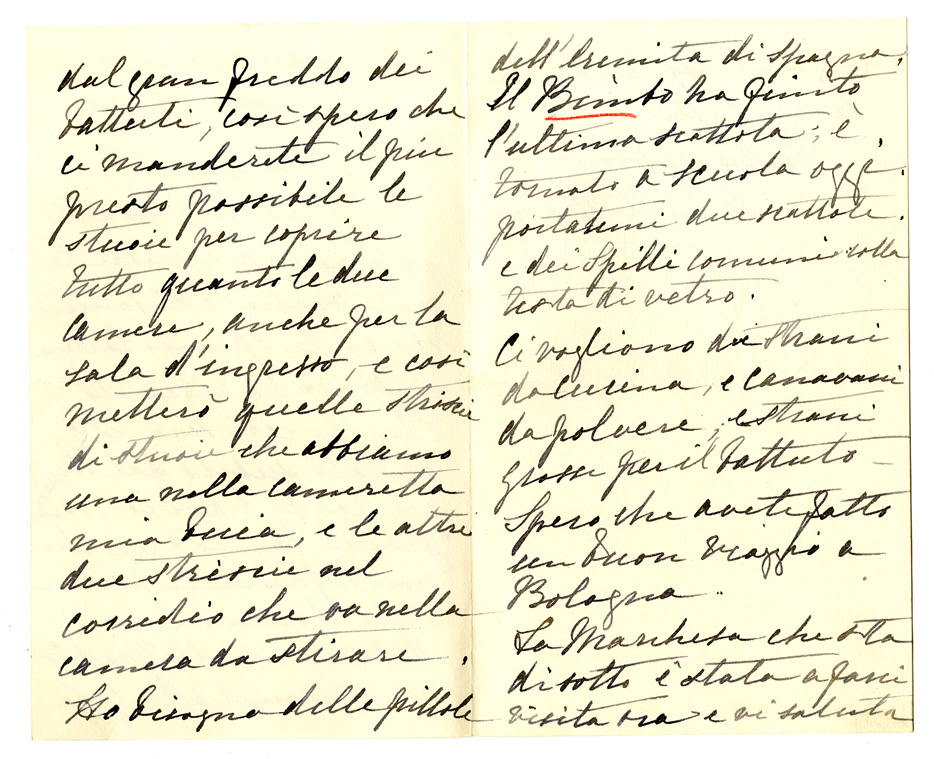 dal gran freddo dei
battuti, così spero che
ci manderete il più
presto possibile le
stuoie per coprire
tutto quanto le due
camere, anche per la
sala d'ingresso, e così
metterò quelle striscie
di stuoie che abbiamo
una nella cameretta
mia buia, e le altre
due striscie nel
corridio che va nella
camera da stirare.
Ho bisogno delle pillole
dell'Eremita di Spagna.
Il Bimbo ha finito
l'ultima scattola; è
tornato a scuola oggi.
portatemi due scattole.
e dei Spilli comuni colla
testa di vetro.
Ci vogliono die strani
da cucina, e canavani
da polvere, e strani
grossi per il battuto –
Spero che avete fatto
un buon viaggio a
Bologna.
La Marchesa che sta
di sotto è stata a farci
visita ora e vi saluta